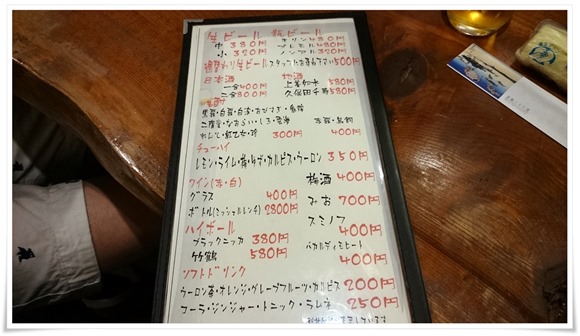 生ビール 瓶ビール
中 380円 キリン 480円
小 320円 プレモル 480円
ノンアル 320円
週替わり生ビール スタッフにお尋ね下さい 500円
日本酒 地酒
一合 400円 上善如水 580円
二合 800円 久保田千寿 580円
300円 400円
チューハイ
レモン・ライム・梅・ゆず・カルピス・ウーロン 350円
ワイン(赤・白) 梅酒 400円
グラス 400円 みお 700円
ボトル(ミッシェルレンチ) 2800円 スミノフ
ハイボール 400円
ブラックニッカ 380円 バカルディモヒート
竹鶴 580円 400円
ソフトドリンク
ウーロン茶・オレンジ・グレープフルーツ・カルピス 200円
コーラ・ジンジャー・トニック・ラムネ 250円